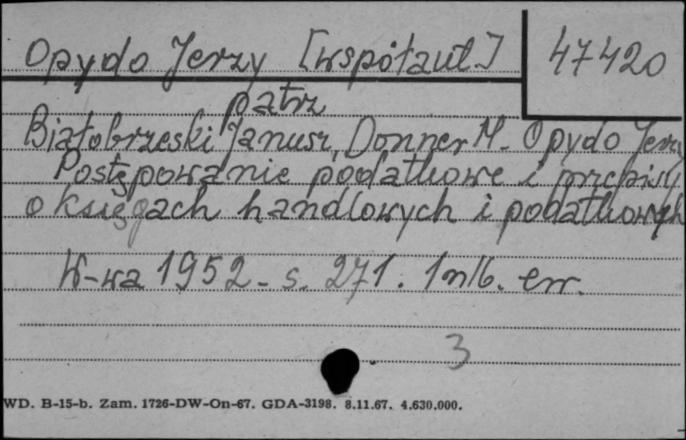 Opydo Jerzy [współaut.] 47420
patrz
Białobrzeski Janusz, Donner M. Opydo Jerzy
Postępowanie podatkowe i przepisy
o księgach handlowych i podatkowych
W-wa 1952. s. 271. 1nlb. err.
3
WD. B-15-b. Zam. 1726-DW-On-67. GDA-3198. 8.11.67. 4.630.000.